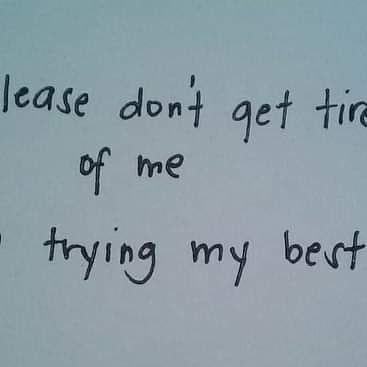 lease don't get tire
of me
trying my best